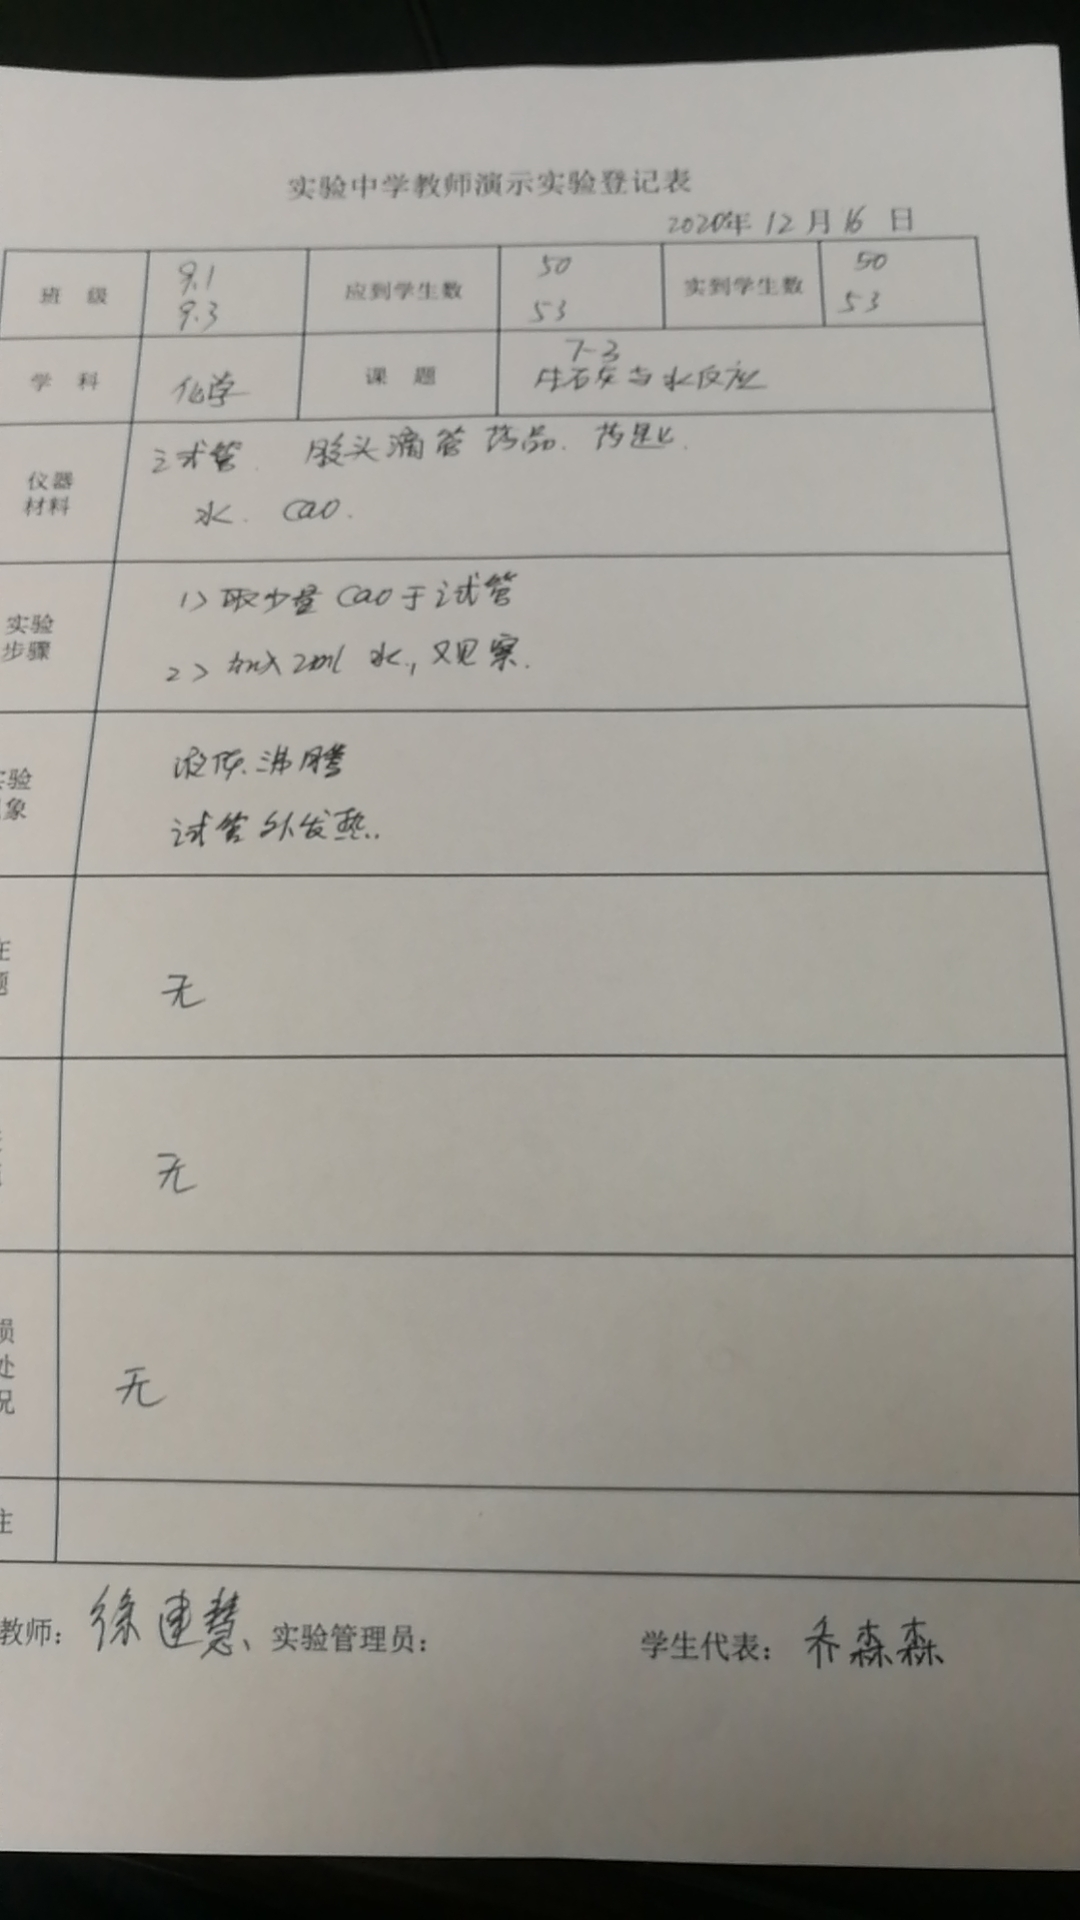 实验中学教师演示实验登记表
2020年 12 月 16 日
班 级 9.1 9.3 应到学生数 50 53 实到学生数 50 53
学 科 化学 课 题 7-3 生石灰与水反应
仪器材料 试管. 胶头滴管 药品. 药匙.
水. CaO.
实验步骤 1> 取少量 CaO 于试管
2> 加入 2ml 水, 观察.
验象 液体沸腾
试管外发热.
在题 无
无
损处况 无
注
教师: 徐建慧 实验管理员: 学生代表: 乔森森